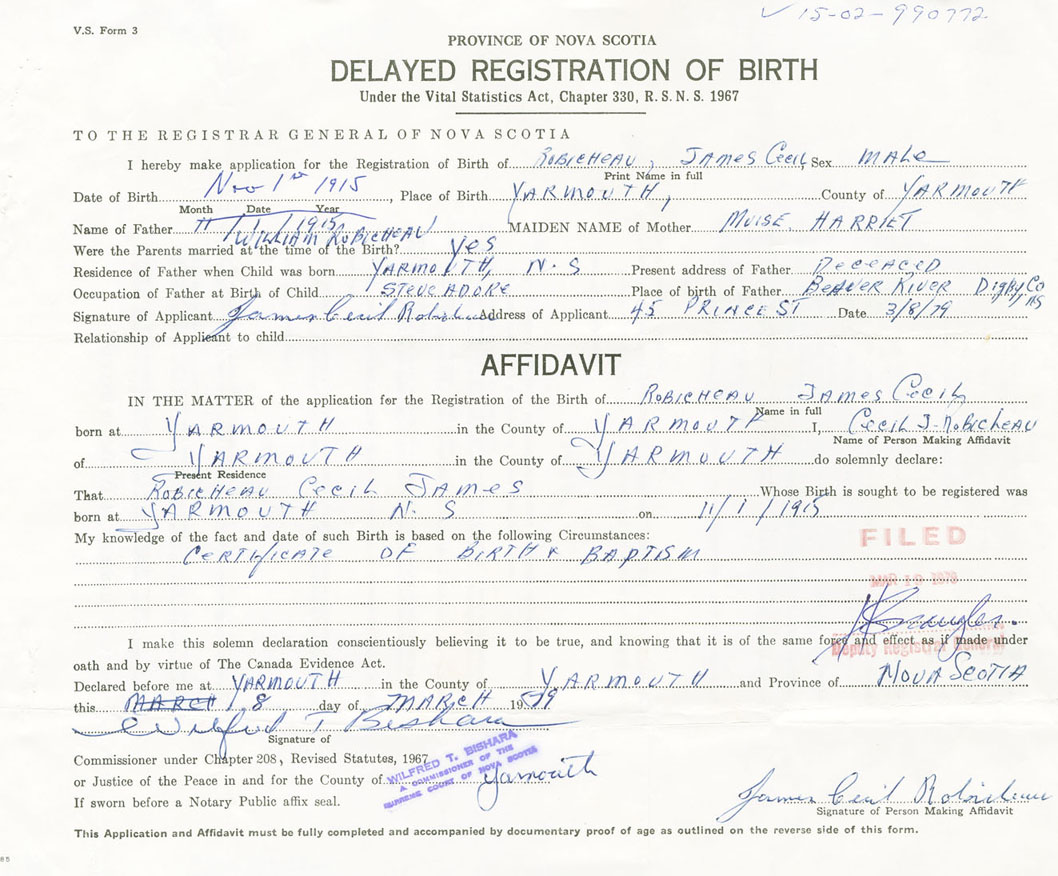 ✓ 15-02-990772
V.S. Form 3
PROVINCE OF NOVA SCOTIA
DELAYED REGISTRATION OF BIRTH
Under the Vital Statistics Act, Chapter 330, R.S.N.S. 1967
TO THE REGISTRAR GENERAL OF NOVA SCOTIA
I hereby make application for the Registration of Birth of ROBICHEAU, JAMES CECIL Sex MALE
Print Name in full
Date of Birth Nov 1st 1915, Place of Birth YARMOUTH, County of YARMOUTH
Month Date Year
11 / 1 / 1915
Name of Father WILLIAM ROBICHEAU MAIDEN NAME of Mother MUISE, HARRIET
Were the Parents married at the time of the Birth? yes
Residence of Father when Child was born YARMOUTH, N.S Present address of Father DECEACED
Occupation of Father at Birth of Child STEVEADORE Place of birth of Father BEAVER RIVER Digby Co NS
Signature of Applicant James Cecil Robicheau Address of Applicant 45 PRINCE ST Date 3/8/79
Relationship of Applicant to child
AFFIDAVIT
IN THE MATTER of the application for the Registration of the Birth of ROBICHEAU JAMES CECIL
Name in full
born at YARMOUTH in the County of YARMOUTH I, CECIL J-ROBICHEAU
Name of Person Making Affidavit
of YARMOUTH in the County of YARMOUTH do solemnly declare:
Present Residence
That ROBICHEAU CECIL JAMES Whose Birth is sought to be registered was
born at YARMOUTH N.S on 11/1/1915
My knowledge of the fact and date of such Birth is based on the following Circumstances:
CERTIFICATE OF BIRTH & BAPTISM
FILED
MAR 19 1979
I make this solemn declaration conscientiously believing it to be true, and knowing that it is of the same force and effect as if made under
Deputy Registrar General
oath and by virtue of The Canada Evidence Act.
Declared before me at YARMOUTH in the County of YARMOUTH and Province of NOVA SCOTIA
this MARCH 8 day of MARCH 1979
Wilfred T Bishara
Signature of
Commissioner under Chapter 208, Revised Statutes, 1967
WILFRED T. BISHARA
A COMMISSIONER OF THE
SUPREME COURT OF NOVA SCOTIA
or Justice of the Peace in and for the County of Yarmouth
If sworn before a Notary Public affix seal.
James Cecil Robicheau
Signature of Person Making Affidavit
This Application and Affidavit must be fully completed and accompanied by documentary proof of age as outlined on the reverse side of this form.
85